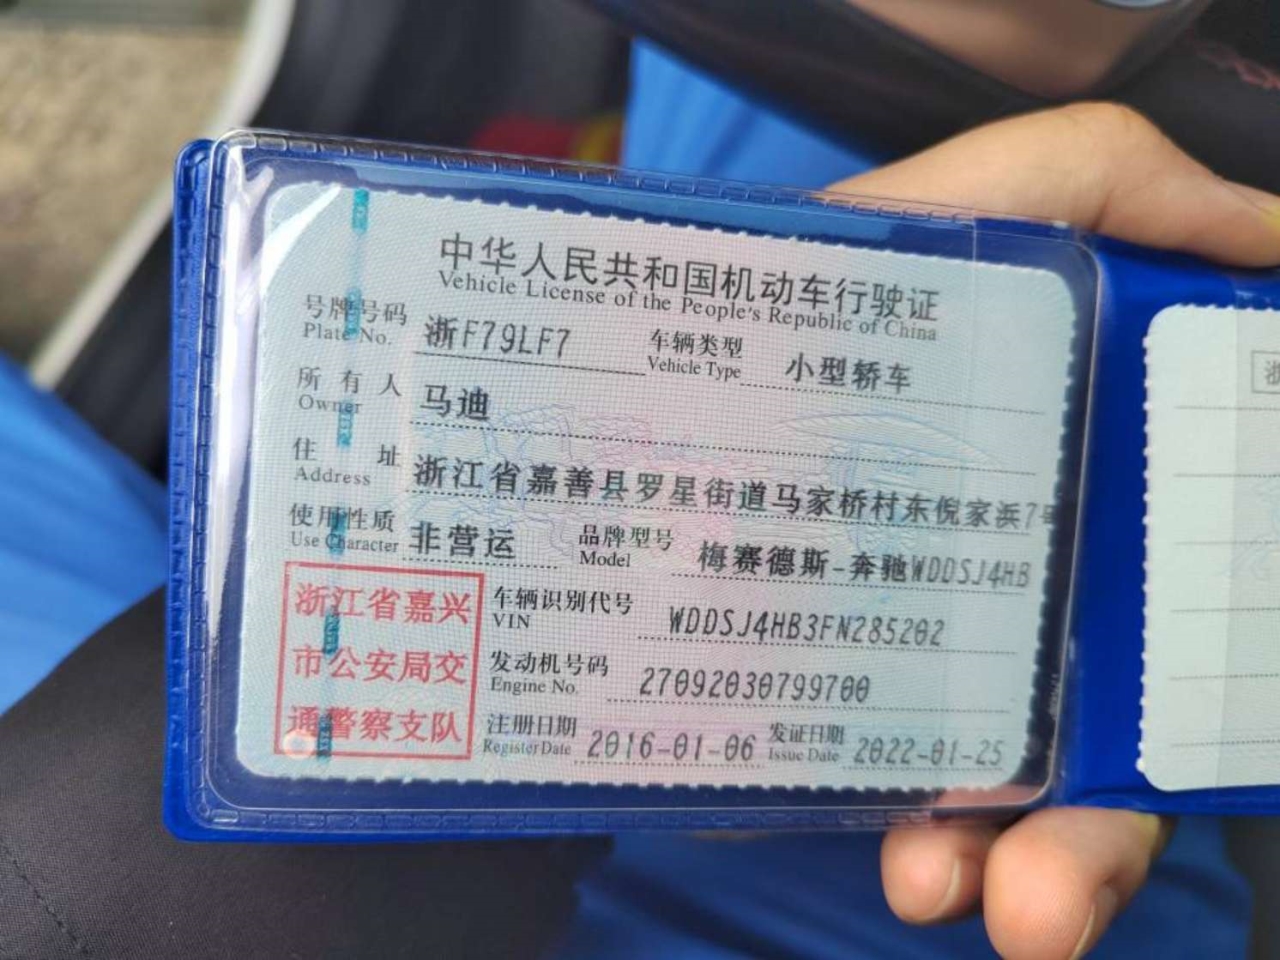 中华人民共和国机动车行驶证
Vehicle License of the People's Republic of China
号牌号码 浙F79LF7 车辆类型 小型轿车
Plate No. Vehicle Type
所有人 马迪
Owner
住址 浙江省嘉善县罗星街道马家桥村东倪家浜7号
Address
使用性质 非营运 品牌型号 梅赛德斯-奔驰WDDSJ4HB
Use Character Model
浙江省嘉兴
市公安局交
通警察支队
车辆识别代号 WDDSJ4HB3FN285202
VIN
发动机号码 27092030799700
Engine No.
注册日期 2016-01-06 发证日期 2022-01-25
Register Date Issue Date
浙